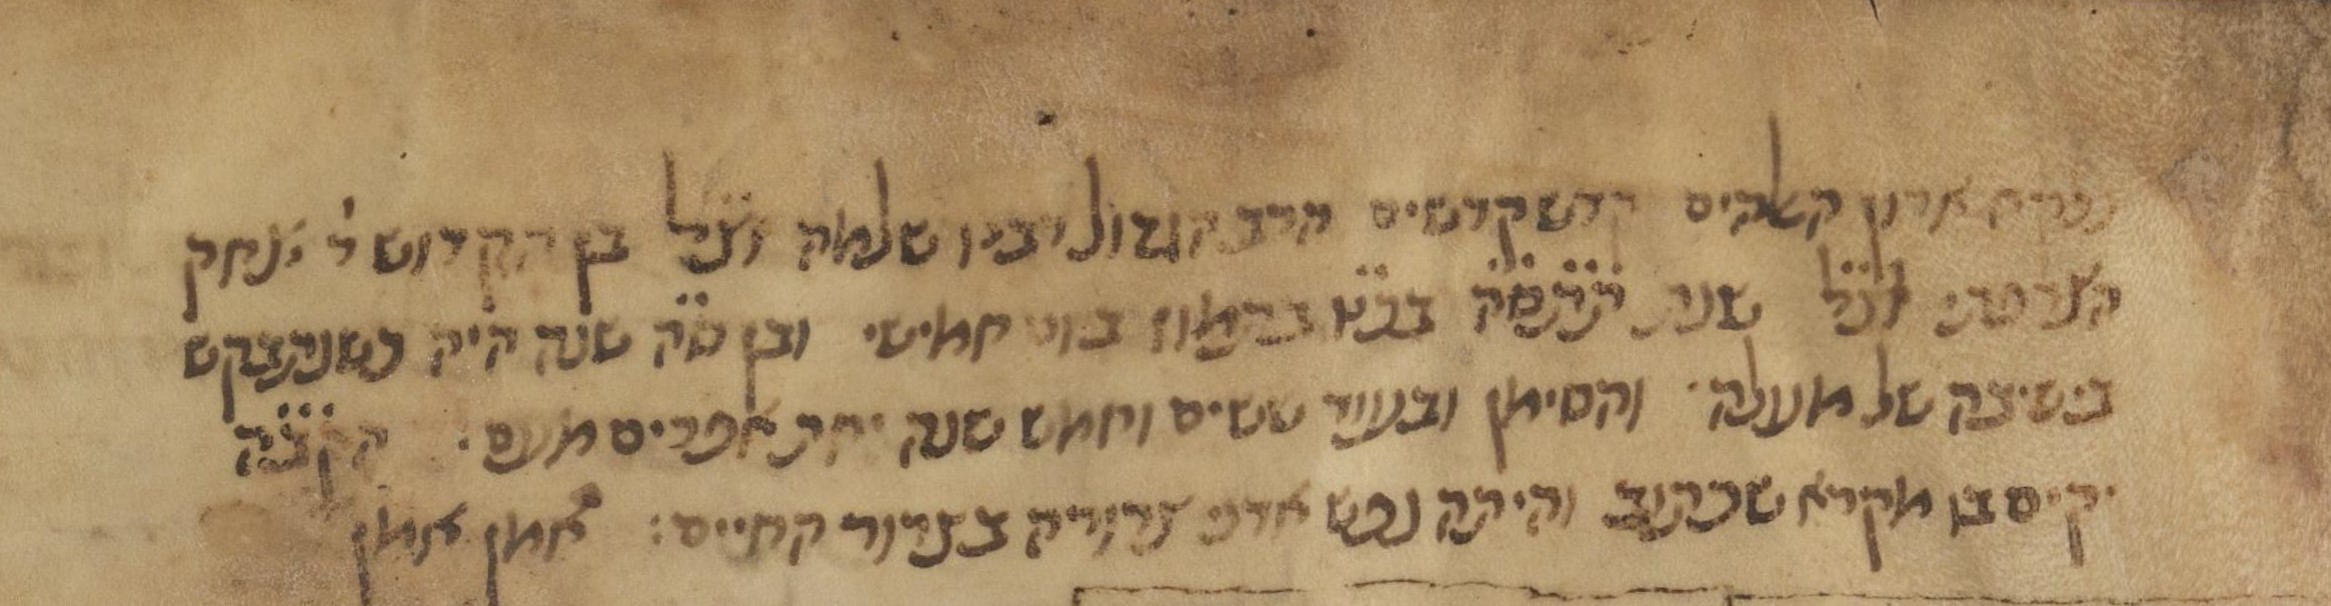 נלקח ארון האלהים קדש קדשים הרב הגדול רבינו שלמה זצ״ל בן הקדוש ר׳ יצחק
הצרפתי זצ״ל שנת תתס״ה בכ״ט בתמוז ביום חמישי ובן ס״ה שנה היה כשנתבקש
בישיבה של מעלה · והסימן ובעוד ששים וחמש שנה יחת אפרים מעם · הקב״ה
יקיים בו מקרא שכתוב והיתה נפש אדני צרורה בצרור החיים : אמן אמן